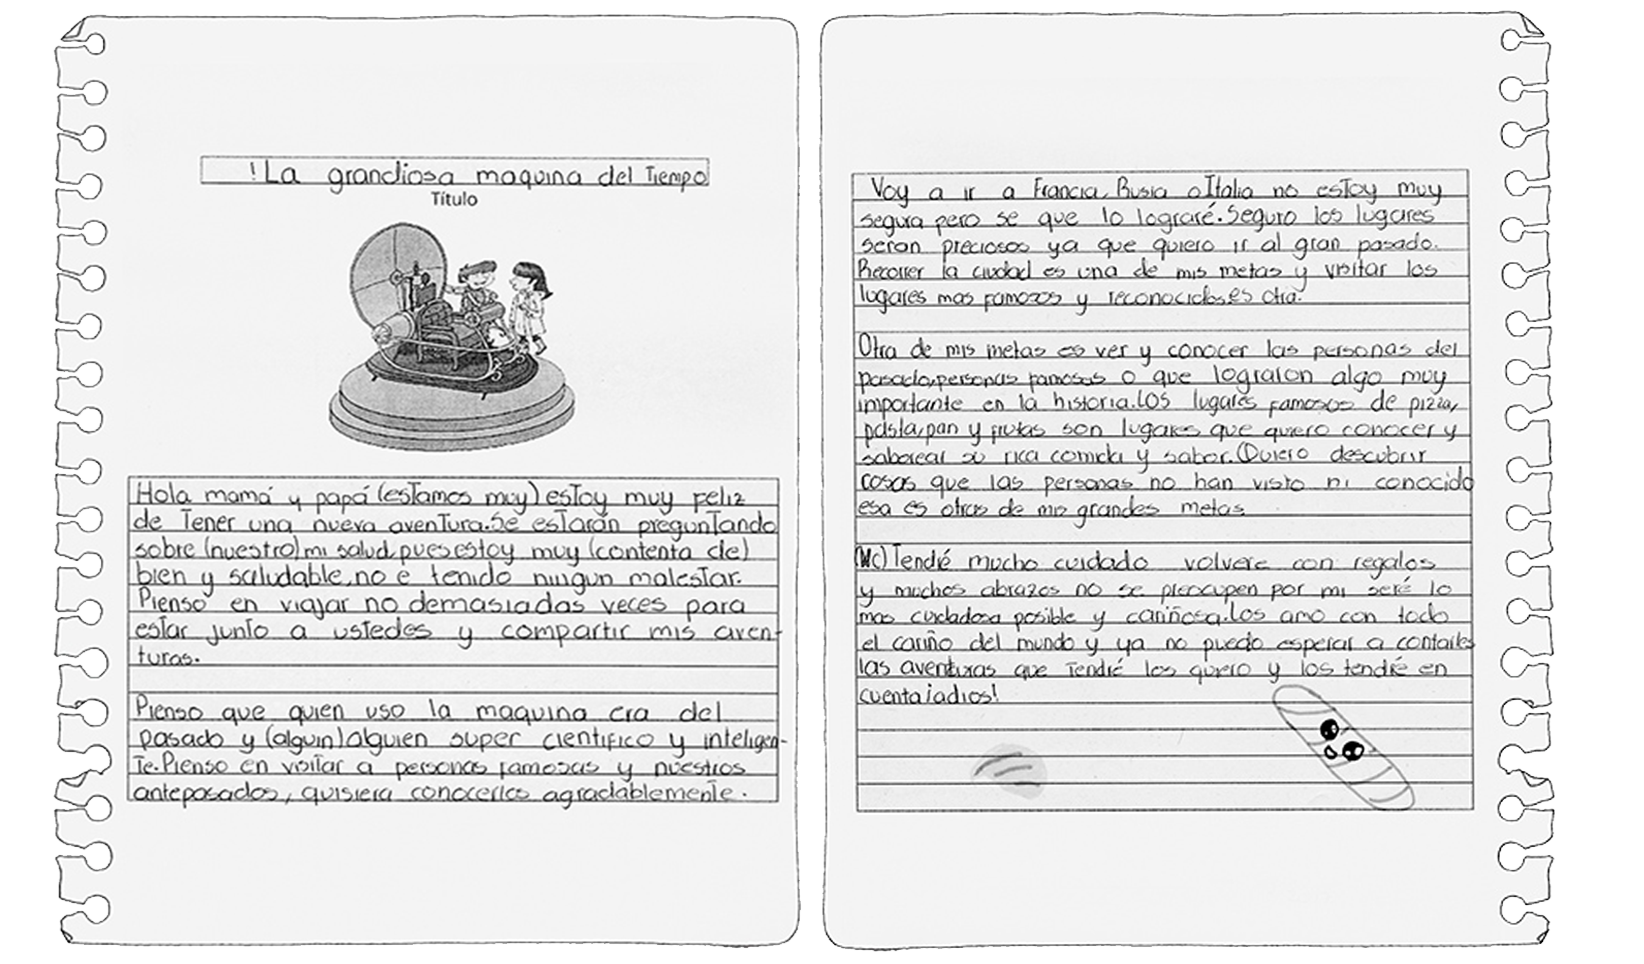 !La grandiosa maquina del Tiempo
Título
Hola mamá y papá (estamos muy) estoy muy feliz
de Tener una nueva aventura. Se estarán preguntando
sobre (nuestro) mi salud, pues estoy muy (contenta de)
bien y saludable, no e tenido ningun malestar.
Pienso en viajar no demasiadas veces para
estar junto a ustedes y compartir mis aven-
turas.
Pienso que quien uso la maquina era del
pasado y (alguin) alguien super cientifico y inteligen-
te. Pienso en visitar a personas famosas y nuestros
antepasados, quisiera conocerlos agradablemente.
Voy a ir a Francia, Rusia o Italia no estoy muy
segura pero se que lo lograré. Seguro los lugares
seran preciosos ya que quiero ir al gran pasado.
Recorrer la ciudad es una de mis metas y visitar los
lugares mas famosos y reconocidos es otra.
Otra de mis metas es ver y conocer las personas del
pasado, personas famosas o que lograron algo muy
importante en la historia. LOS lugares famosos de pizza,
pasta, pan y frutas son lugares que quiero conocer y
saborear su rica comida y sabor. Quiero descubrir
cosas que las personas no han visto ni conocido
esa es otras de mis grandes metas.
Tendré mucho cuidado volvere con regalos
y muchos abrazos no se preocupen por mi seré lo
mas cuidadosa posible y cariñosa. Los amo con todo
el cariño del mundo y ya no puedo esperar a contarles
las aventuras que Tendré los quiero y los tendré en
cuenta ¡adios!